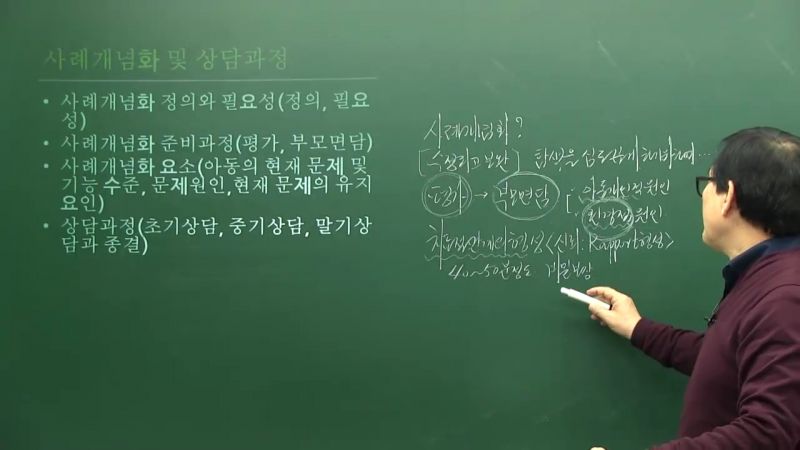 사례개념화 및 상담과정
• 사례개념화 정의와 필요성(정의, 필요
성)
• 사례개념화 준비과정(평가, 부모면담)
• 사례개념화 요소(아동의 현재 문제 및
기능 수준, 문제원인,현재 문제의 유지
요인)
• 상담과정(초기상담, 중기상담, 말기상
담과 종결)
사례개념화?
[수정하고 보완]
평가 → 부모면담 [· 아동개인적원인
환경적원인
치료적관계의형성<신뢰: Rapport형성>
40~50분정도 비밀보장